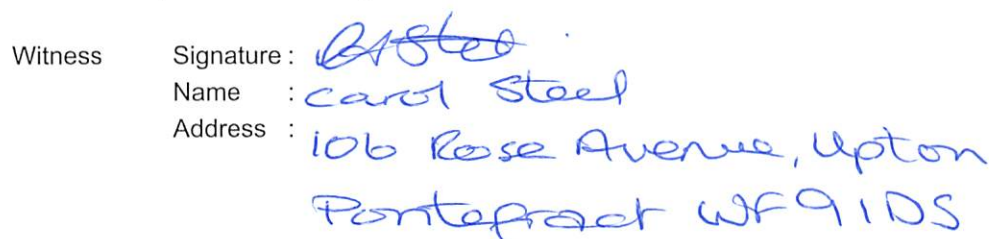 Witness Signature : CASteel
Name : Carol Steel
Address : 106 Rose Avenue, Upton
Pontefract WF9 1DS